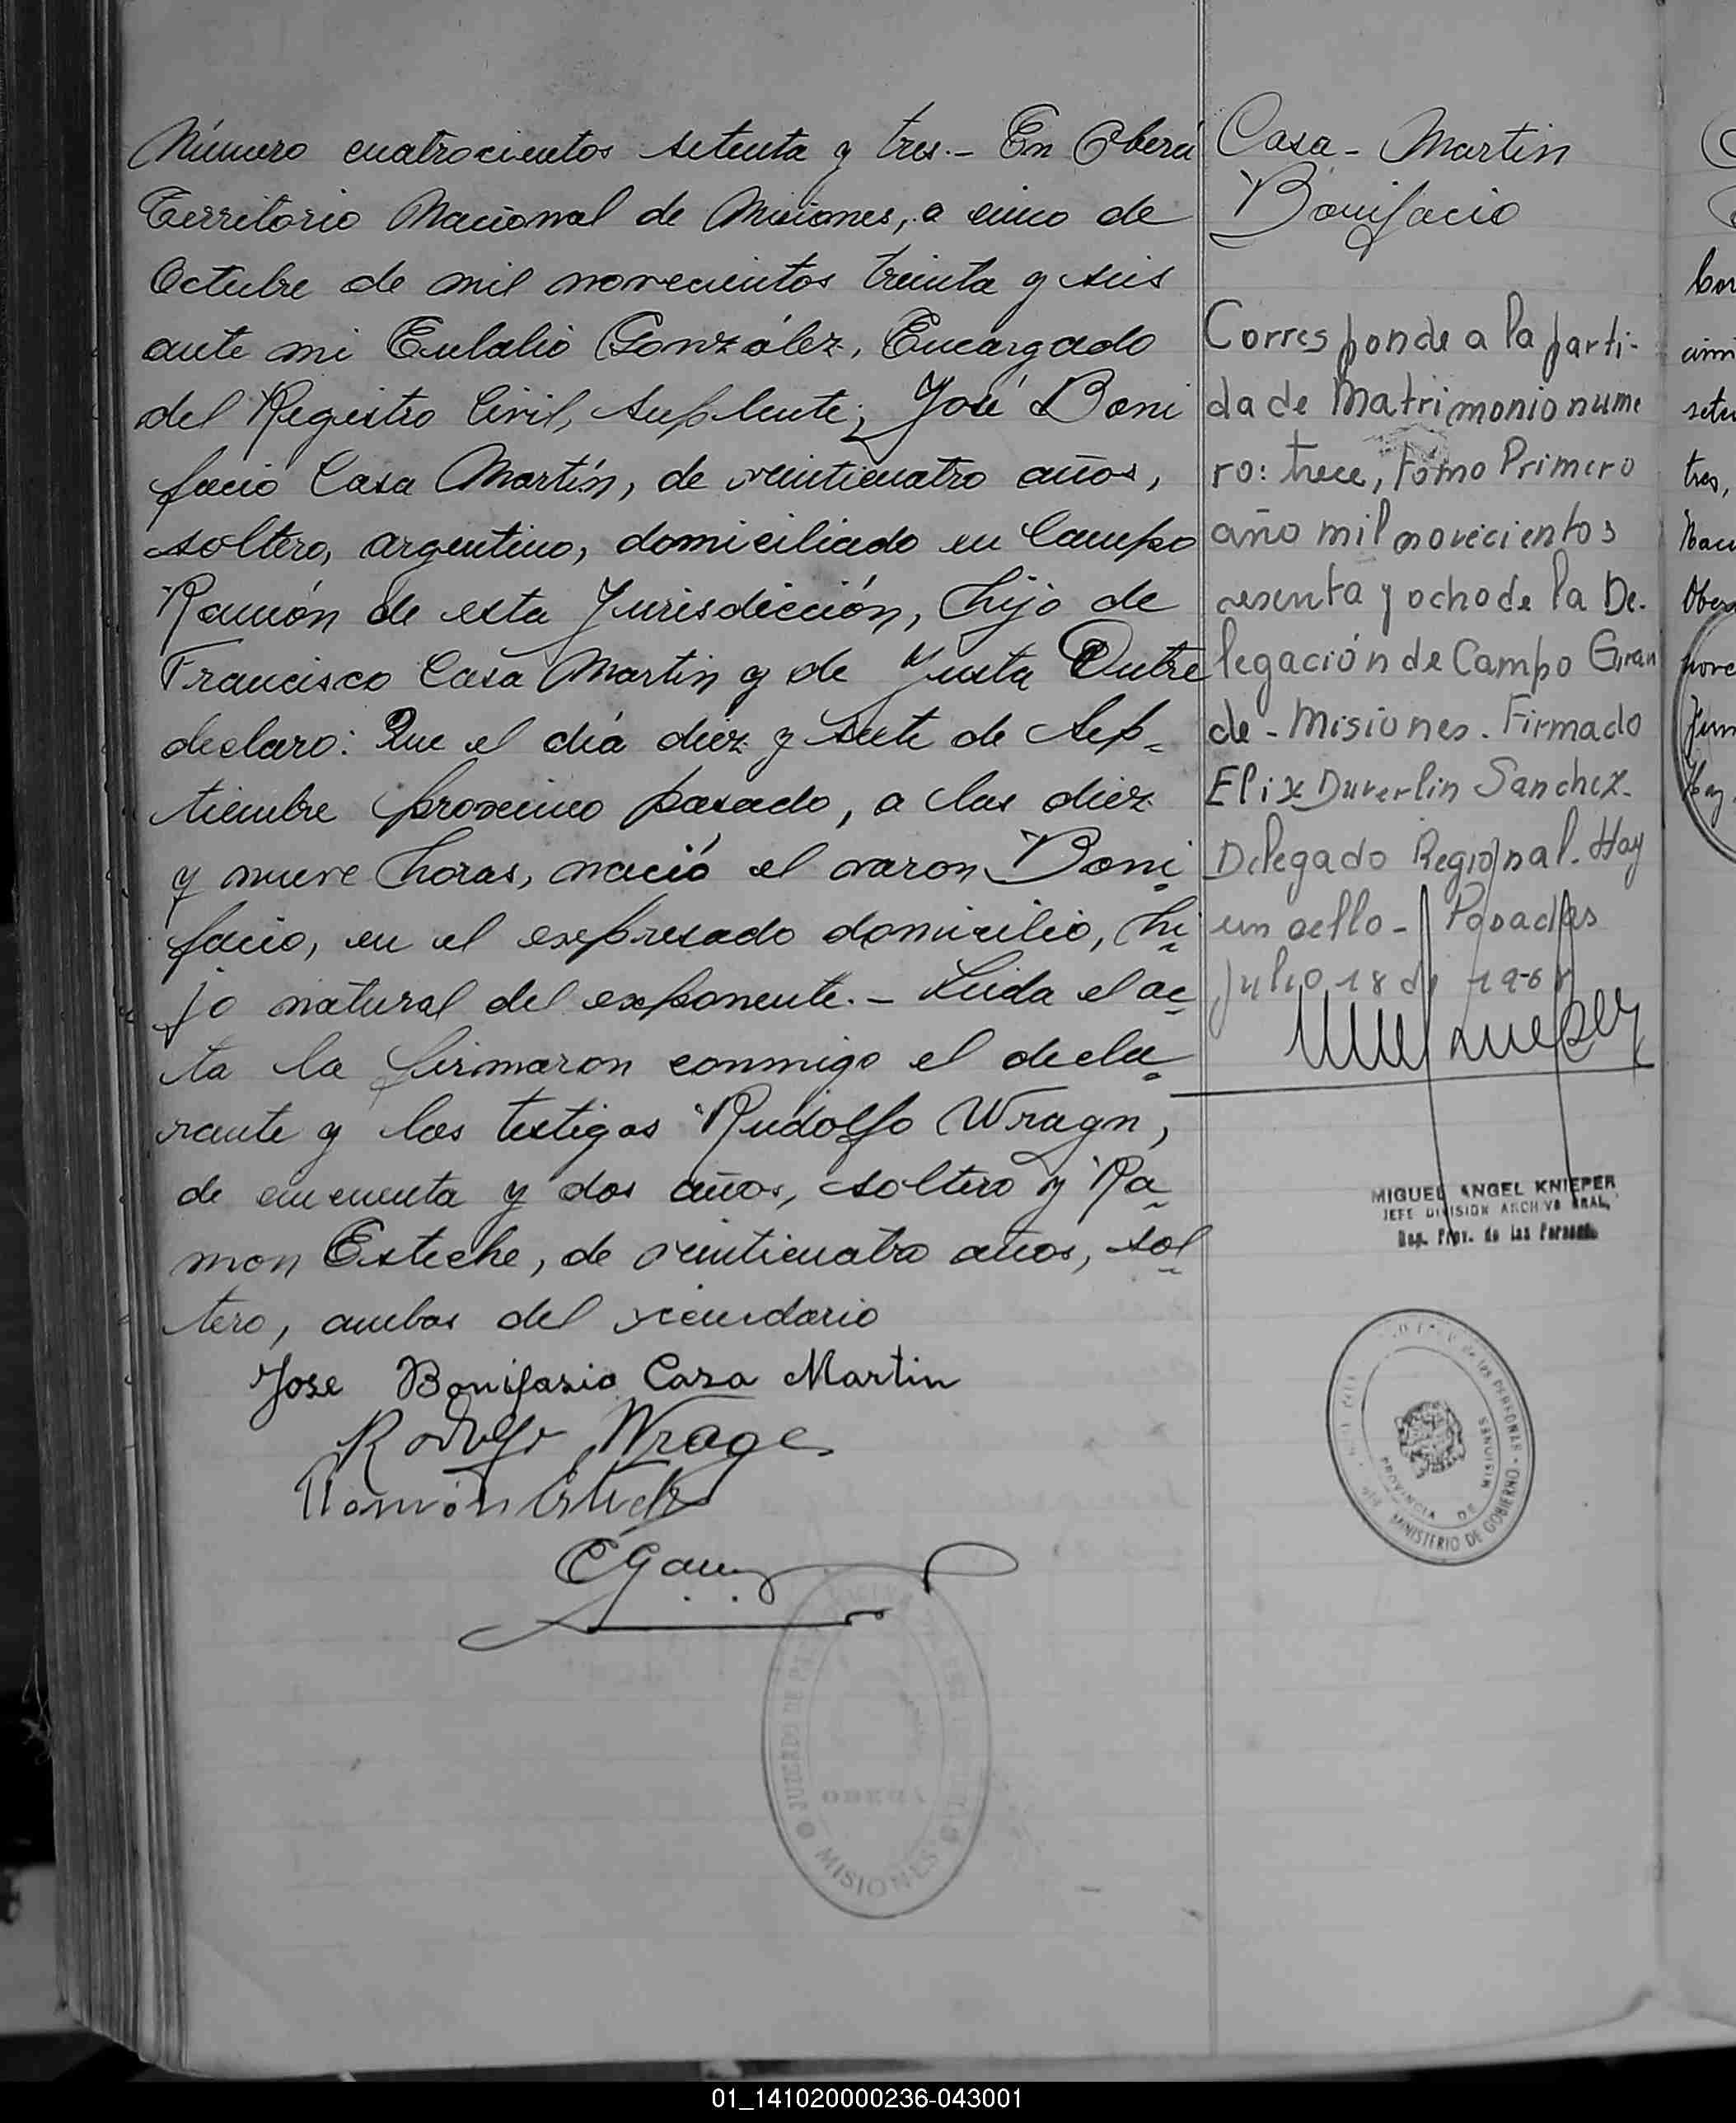 Número cuatrocientos setenta y tres.- En Oberá
Territorio Nacional de Misiones, a cinco de
Octubre de mil novecientos treinta y seis
ante mi Eulalio González, Encargado
del Registro Civil, Suplente; José Boni
facio Casa Martín, de veinticuatro años,
soltero, argentino, domiciliado en Campo
Ramón de esta Jurisdicción, hijo de
Francisco Casa Martin y de Justa Dutre
declaro: Que el día diez y siete de Sep-
tiembre proximo pasado, a las diez
y nueve horas, nació el varon Boni-
facio, en el expresado domicilio, hi-
jo natural del exponente.- Leida el ac-
ta la firmaron conmigo el decla-
rante y los testigos Rudolfo Wragn,
de cincuenta y dos años, soltero y Ra-
mon Esteche, de veinticuatro años, sol-
tero, ambos del vecindario
Jose Bonifasio Casa Martin
Rodolfo Wrage
Ramón Esteche
EGonz
JUZGADO DE
OBERA
MISIONES
Casa- Martin
Bonifacio
Corresponde a la parti-
da de Matrimonio nume
ro: trece, Tomo Primero
año mil novecientos
sesenta y ocho de la De-
legación de Campo Gran
de - Misiones. Firmado
Elix Duverlin Sanchez.
Delegado Regional. Hay
un sello - Posadas
Julio 18 de 1968
MIGUEL ANGEL KNIEPER
JEFE DIVISION ARCHIVO GRAL.
Reg. Prov. de las Personas
DE LAS PERSONAS
PROVINCIA DE MISIONES
MINISTERIO DE GOBIERNO
01_141020000236-043001